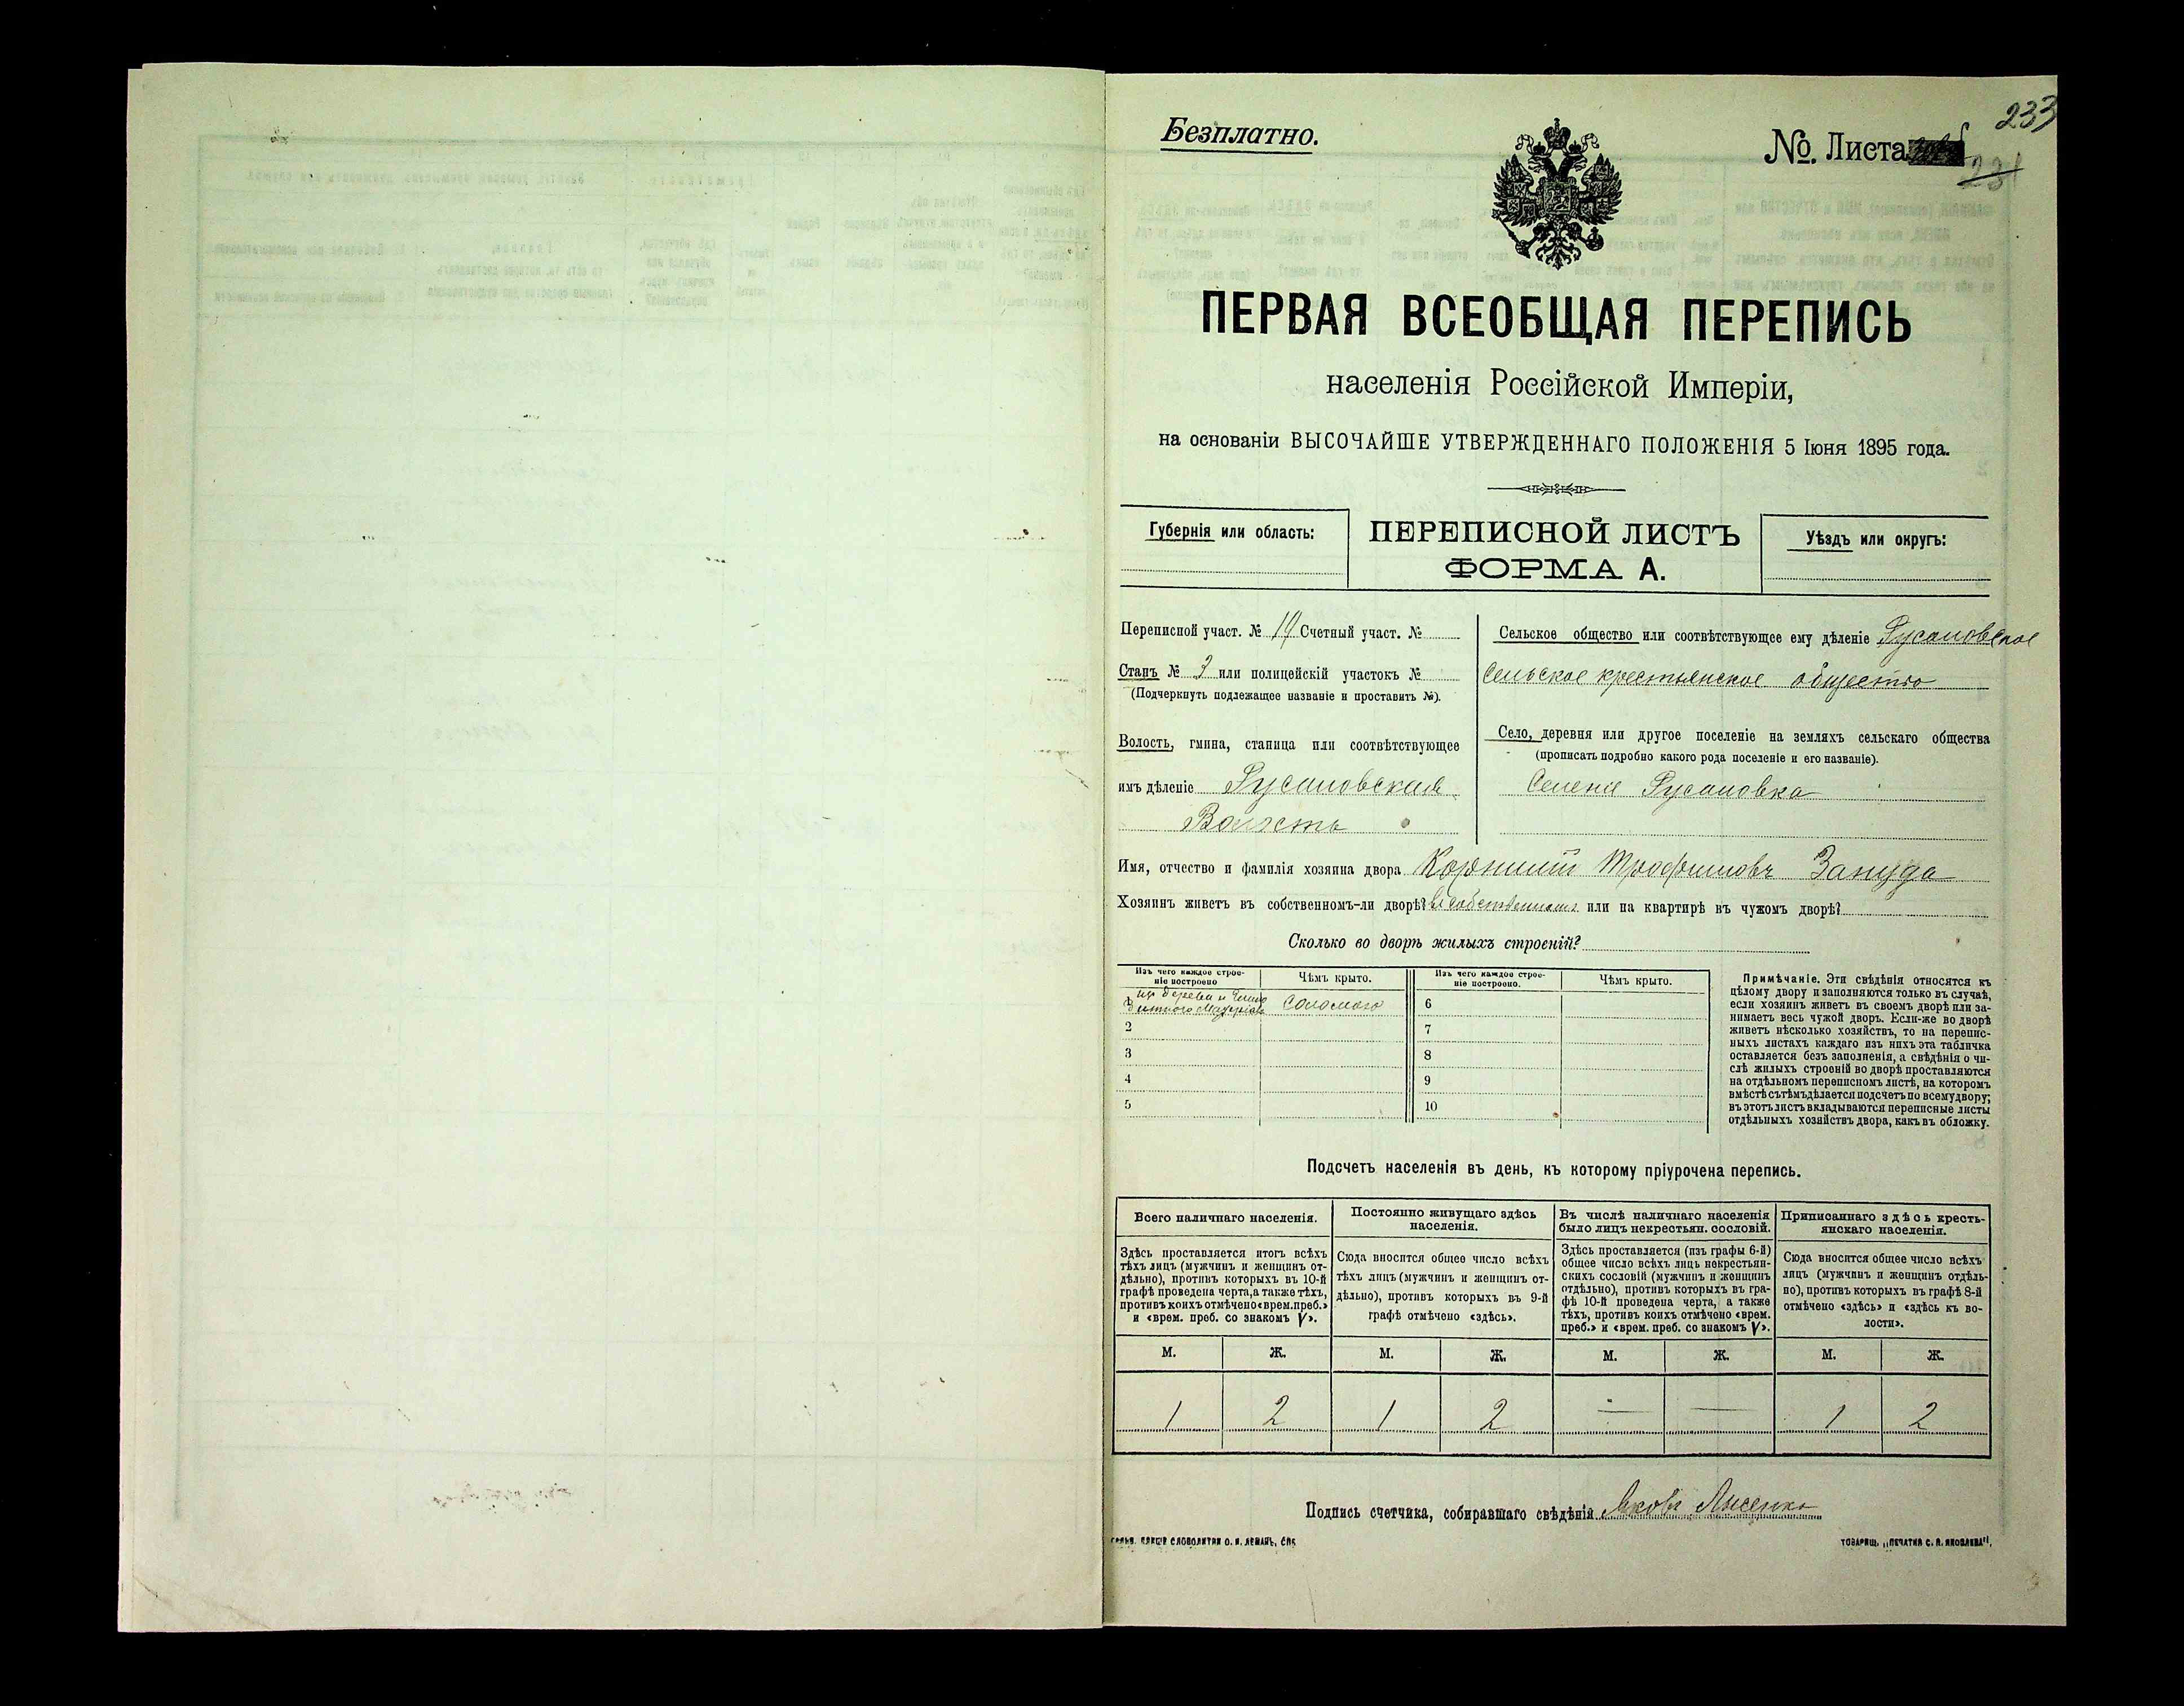 233
Безплатно.
№ Листа
231
ПЕРВАЯ ВСЕОБЩАЯ ПЕРЕПИСЬ
населенія Россійской Имперіи,
на основаніи ВЫСОЧАЙШЕ УТВЕРЖДЕННАГО ПОЛОЖЕНІЯ 5 Іюня 1895 года.
Губернія или область:
ПЕРЕПИСНОЙ ЛИСТЪ
ФОРМА А.
Уѣздъ или округъ:
Переписной участ. № 14 Счетный участ. №
Станъ № 3 или полицейскій участокъ №
(Подчеркнуть подлежащее названіе и проставить №).
Волость, гмина, станица или соотвѣтствующее
имъ дѣленіе Русановская
Волость
Сельское общество или соотвѣтствующее ему дѣленіе Русановское
Сельское крестьянское общество
Село, деревня или другое поселеніе на земляхъ сельскаго общества
(прописать подробно какого рода поселеніе и его названіе).
Селеніе Русановка
Имя, отчество и фамилія хозяина двора Корнилій Трофимовъ Зануда
Хозяинъ живетъ въ собственномъ-ли дворѣ? въ собственномъ или на квартирѣ въ чужомъ дворѣ?
Сколько во дворѣ жилыхъ строеній?
Изъ чего каждое строе-
ніе построено
Чѣмъ крыто.
Изъ чего каждое строе-
ніе построено.
Чѣмъ крыто.
изъ дерева и
Соломою
6
2
7
3
8
4
9
5
10
Примѣчаніе. Эти свѣдѣнія относятся къ
цѣлому двору и заполняются только въ случаѣ,
если хозяинъ живетъ въ своемъ дворѣ или за-
нимаетъ весь чужой дворъ. Если-же во дворѣ
живетъ нѣсколько хозяйствъ, то на перепис-
ныхъ листахъ каждаго изъ нихъ эта табличка
оставляется безъ заполненія, а свѣдѣнія о чи-
слѣ жилыхъ строеній во дворѣ проставляются
на отдѣльномъ переписномъ листѣ, на которомъ
вмѣстѣ съ тѣмъ дѣлается подсчетъ по всему двору;
въ этотъ листъ вкладываются переписные листы
отдѣльныхъ хозяйствъ двора, какъ въ обложку.
Подсчетъ населенія въ день, къ которому пріурочена перепись.
Всего наличнаго населенія.
Здѣсь проставляется итогъ всѣхъ
тѣхъ лицъ (мужчинъ и женщинъ от-
дѣльно), противъ которыхъ въ 10-й
графѣ проведена черта, а также тѣхъ,
противъ коихъ отмѣчено «врем. преб.»
и «врем. преб. со знакомъ V».
Постоянно живущаго здѣсь
населенія.
Сюда вносится общее число всѣхъ
тѣхъ лицъ (мужчинъ и женщинъ от-
дѣльно), противъ которыхъ въ 9-й
графѣ отмѣчено «здѣсь».
Въ числѣ наличнаго населенія
было лицъ некрестьян. сословій.
Здѣсь проставляется (изъ графы 6-й)
общее число всѣхъ лицъ некрестьян-
скихъ сословій (мужчинъ и женщинъ
отдѣльно), противъ которыхъ въ гра-
фѣ 10-й проведена черта, а также
тѣхъ, противъ коихъ отмѣчено «врем.
преб.» и «врем. преб. со знакомъ V».
Приписаннаго здѣсь кресть-
янскаго населенія.
Сюда вносится общее число всѣхъ
лицъ (мужчинъ и женщинъ отдѣль-
но), противъ которыхъ въ графѣ 8-й
отмѣчено «здѣсь» и «здѣсь къ во-
лости».
М. Ж. М. Ж. М. Ж. М. Ж.
1 2 1 2 — — 1 2
Подпись счетчика, собиравшаго свѣдѣнія Яковъ Лисенко
СЛОВОЛИТНИ О. И. ЛЕМАНЪ, СПБ
ТОВАРИЩ. „ПЕЧАТНЯ С. П. ЯКОВЛЕВА",